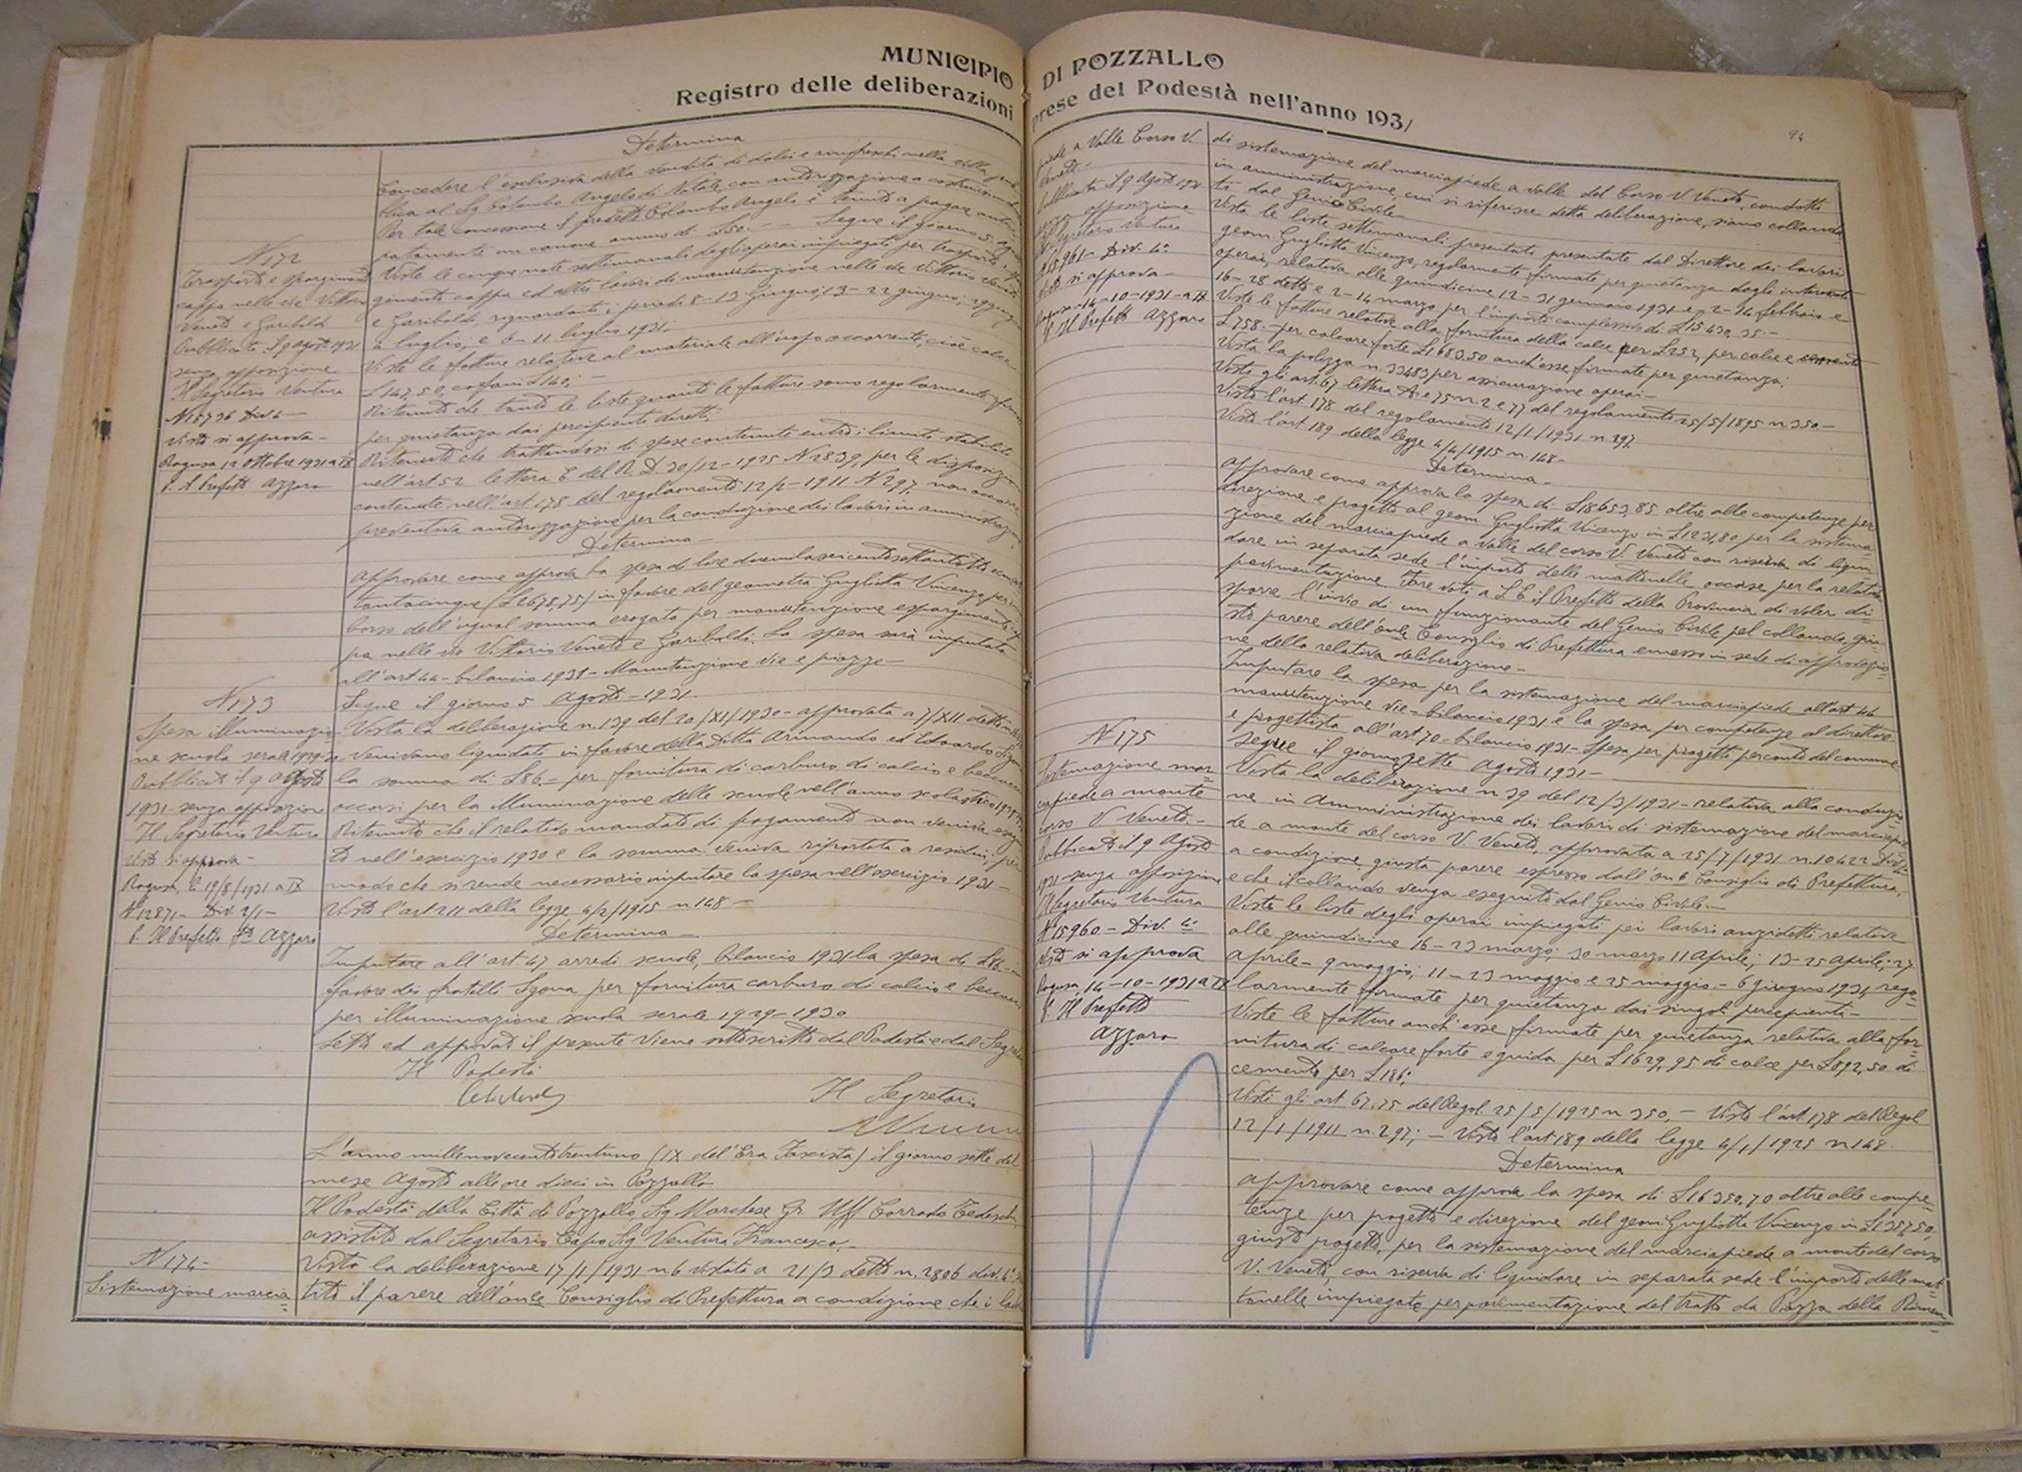 MUNICIPIO DI POZZALLO
Registro delle deliberazioni prese del Podestà nell'anno 1931
94
Determina
Concedere l'esclusiva della vendita di dolci e rinfreschi nella villa
al Sig Colombo Angelo di Natale, con autorizzazione a costruire
Per tale concessione il predetto Colombo Angelo è tenuto a pagare
un canone annuo di £50.- Segue il giorno 5
N 172
Trasporto e spargimento
nelle vie Vittorio
Veneto e Garibaldi
Pubblicata il 9 agosto 1931
senza opposizione
Il Segretario Ventura
N 15736 Div 4
Visto si approva-
Ragusa 12 Ottobre 1931 a IX
p. Il Prefetto Azzaro
Viste le cinque note settimanali degli operai impiegati per trasporto e
ed altri lavori di manutenzione nelle vie Vittorio Veneto
e Garibaldi, riguardanti i periodi 8-13 Giugno; 13-22 giugno;
luglio, e 6-11 luglio 1931.
Viste le fatture relative al materiale all'uopo occorrente, cioè calce
£147,50,
Ritenuto che tanto le liste quanto le fatture sono regolarmente
per quietanza dai percipienti diretti;
Ritenuto che trattandosi di spese contenute entro i limiti stabiliti
nell'art 52 lettera E del R. D. 30/12-1925 N 2839, per le disposizioni
contenute nell'art 178 del regolamento 12/2-1911 N 297, non occorre
preventiva autorizzazione per la conduzione dei lavori in amministrazione
Determina
Approvare come approva la spesa di lire duemilaseicentosettantotto e
tantacinque (£2678,75) in favore del geometra Gugliotta Vincenzo per
borso dell'ugual somma erogata per manutenzione e spargimento
pa nelle vie Vittorio Veneto e Garibaldi. La spesa sarà imputata
all'art 44 - bilancio 1931 - Manutenzione vie e piazze-
N 173
Spesa illuminazio
ne scuola serale 1929-30
Pubblicata il 9 Agosto
1931 - senza opposizion
Il Segretario Ventura
Visto si approva-
Ragusa, li 19/8/1931 a IX
N 12871 - Div. 2/1-
p. Il Prefetto Azzaro
Segue il giorno 5 Agosto - 1931
Vista la deliberazione n. 139 del 20/XI/1930 - approvata a 7/XII detto
venivano liquidati in favore della Ditta Armando ed Edoardo
la somma di £86.= per fornitura di carburo di calcio e
occorsi per la illuminazione delle scuole nell'anno scolastico 1929
Ritenuto che il relativo mandato di pagamento non veniva
to nell'esercizio 1930 e la somma veniva riportata a residui,
modo che si rende necessario imputare la spesa nell'esercizio 1931-
Visto l'art 211 della legge 4/2/1915 n 148-
Determina-
Imputare all'art 47 arredi scuole, bilancio 1931 la spesa di £86
favore dei fratelli per fornitura carburo di calcio e
per illuminazione scuola serale 1929-1930
Letto ed approvato il presente viene sottoscritto dal Podestà e dal
Il Podestà
Il Segretario
L'anno millenovecentotrentuno (IX del'Era Fascista) il giorno sette del
mese Agosto alle ore dieci in Pozzallo
Il Podestà della Città di Pozzallo Sig Marchese Gr. Uff Corrado Tedeschi
assistito dal Segretario Capo Sig Ventura Francesco-
N 174-
Sistemazione marcia
Vista la deliberazione 17/1/1931 n 6 vistata a 21/3 detto n. 2806 div. 4
tito il parere dell'on.le Consiglio di Prefettura a condizione che i
piede a Valle Corso V.
Veneto-
Pubblicata il 9 Agosto 1931
senza opposizione
Il Segretario Ventura
N 15961 - Div. 4a
Visto si approva-
Ragusa 14-10-1931 a IX
p. Il Prefetto Azzaro
di sistemazione del marciapiede a valle del Corso V Veneto, condotti
in amministrazione, cui si riferisce detta deliberazione, siano collauda
ti dal Genio Civile-
Viste le liste settimanali presentate dal Direttore dei lavori
geom Gugliotta Vincenzo, regolarmente firmate per quietanza dagli
operai, relative alle quindicine 12-31 gennaio 1931 e 2-14 febbraio e
16-28 detto e 2-14 marzo per l'importo complessivo di £15430,35.-
Viste le fatture relative alla fornitura della calce per £252, per calce e cemento
£758.- per calcare forte £1683,50 anch'esse firmate per quietanza;
Vista la polizza n. 33483 per assicurazione operai-
Visto gli art. 67 lettera A e 75 n. 2 e 77 del regolamento 25/5/1895 n 350-
Visto l'art 178 del regolamento 12/1/1931 n. 297.
Visto l'art 189 della legge 4/4/1915 n. 148-
Determina-
approvare come approva la spesa di £18653,85 oltre alle competenze per
direzione e progetto al geom Gugliotta Vincenzo in £1231,80 per la sistema
zione del marciapiede a valle del corso V. Veneto con riserva di liqui
dare in separata sede l'importo delle mattonelle occorse per la relativa
pavimentazione. Fare voti a S.E. il Prefetto della Provincia di voler di
sporre l'invio di un funzionante del Genio Civile pel collaudo, giu
sto parere dell'on.le Consiglio di Prefettura emesso in sede di approvazio
ne della relativa deliberazione-
Imputare la spesa per la sistemazione del marciapiede all'art 44
manutenzione vie - bilancio 1931 e la spesa per competenze al direttore
e progettista all'art 70 - bilancio 1931 - Spesa per progetti per conto del comune
N 175
Sistemazione mar
ciapiede a monte
corso V Veneto-
Pubblicata il 9 Agosto
1931 senza opposizione
Il Segretario Ventura
N 15960 - Div. 4a
Visto si approva
Ragusa 14-10-1931 a IX
p. Il Prefetto
Azzaro
Segue il giorno sette Agosto 1931-
Vista la deliberazione n 39 del 12/3/1931 - relativa alla conduzio
ne in Amministrazione dei lavori di sistemazione del marciapie
de a monte del corso V. Veneto, approvata a 25/7/1931 n. 10422 Div
a condizione, giusta parere espresso dall'on.le Consiglio di Prefettura,
e che il collaudo venga eseguito dal Genio Civile-
Viste le liste degli operai impiegati pei lavori anzidetti relative
alle quindicine 16-23 marzo; 30 marzo 11 Aprile; 13-25 aprile; 27
aprile - 9 maggio; 11-23 maggio e 25 maggio - 6 giugno 1931, rego
larmente firmate per quietanza dai singoli percepienti-
Viste le fatture anch'esse firmate per quietanza relativa alla for
nitura di calcare forte e guida per £1629,95 di calce per £892,50 di
cemento per £186;
Visti gli art 67, 75 del Regol. 25/5/1925 n 350. - Visto l'art. 178 del Regol
12/1/1911 n. 297; - Visto l'art 189 della legge 4/1/1925 n 148.
Determina
approvare come approva la spesa di £16350,70 oltre alle compe
tenze per progetto e direzione del geom. Gugliotta Vincenzo in £1257,50,
giusto progetto, per la sistemazione del marciapiede a monte del corso
V. Veneto, con riserva di liquidare in separata sede l'importo delle mat
tonelle impiegate per pavimentazione del tratto da Piazza della Rimem